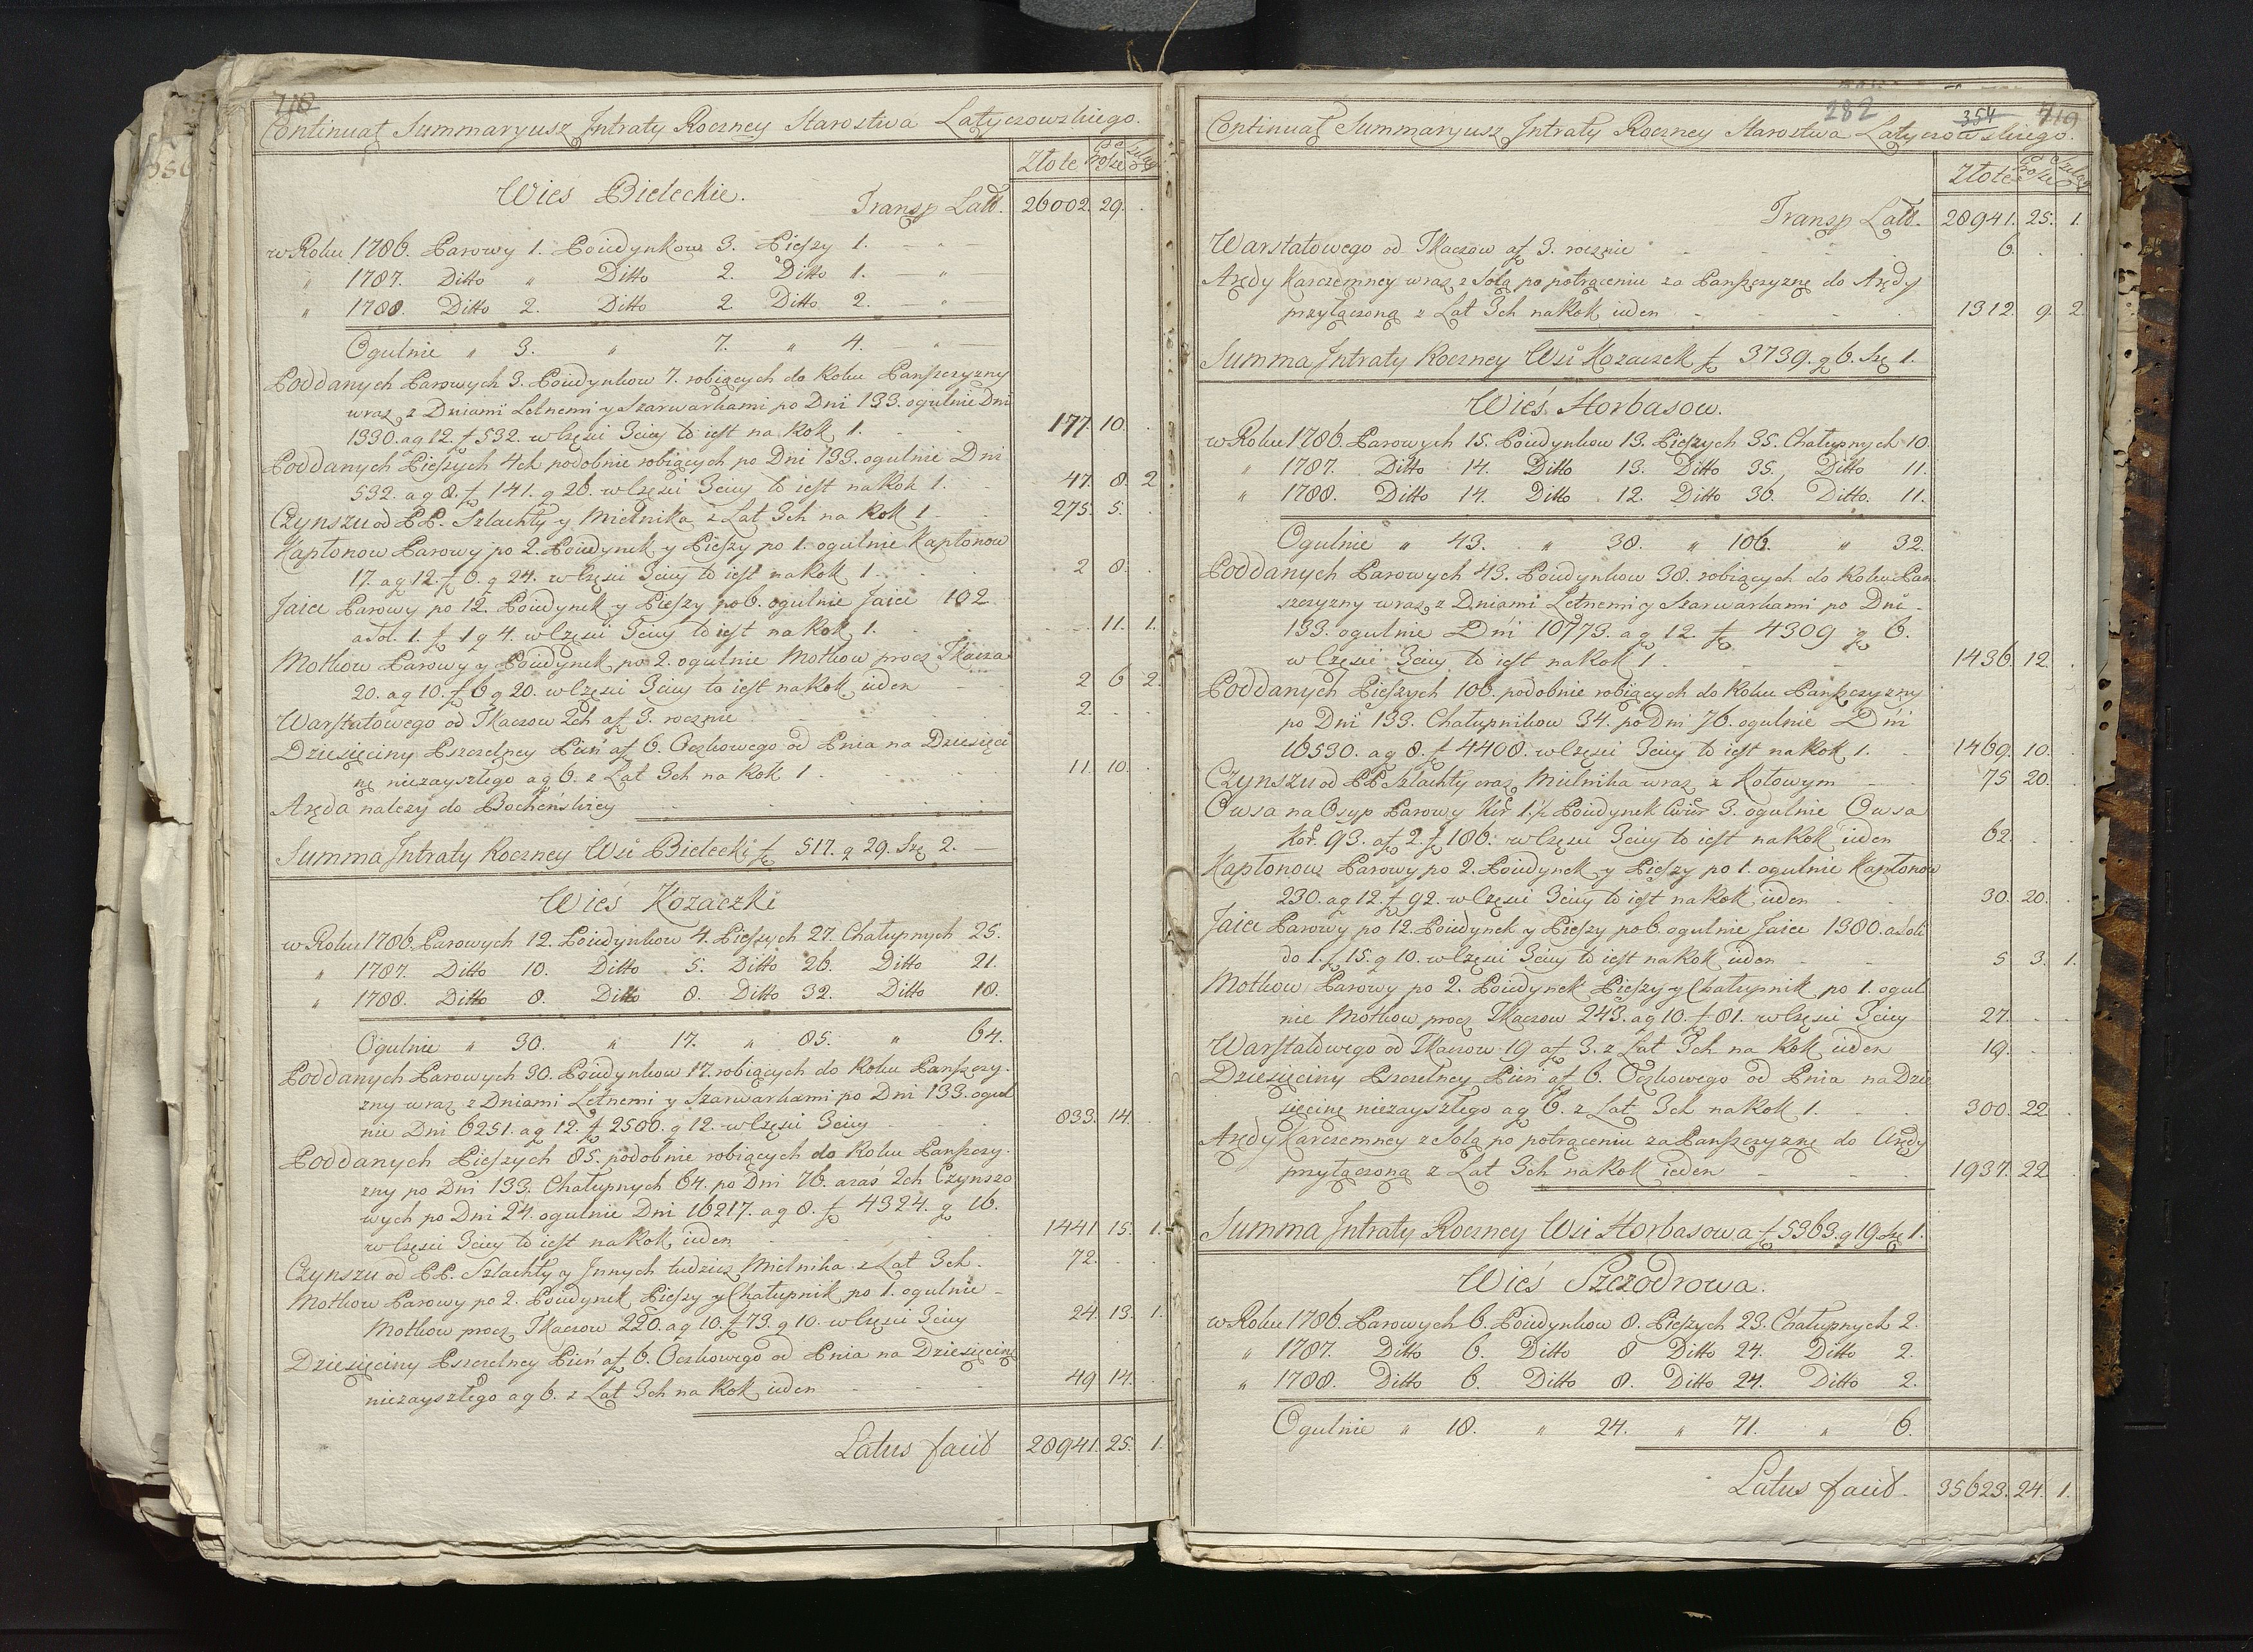 718
Continuat Summaryusz Jntraty Roczney Starostwa Latyczowskiego.
Złote
Wies Bieleckie.
Transp Latt. 26002. 29.
w Roku 1786. Parowy 1. Poiedynkow 3. Pieszy 1.
" 1787. Ditto " Ditto 2. Ditto 1.
" 1788. Ditto 2. Ditto 2 Ditto 2.
Ogulnie " 3. " 7. " 4.
Poddanych Parowych 3. Poiedynkow 7. robiących do Roku Panszczyzny
wraz z Dniami Letnemi y Szarwarkami po Dni 133. ogulnie Dni
1330. a g 12. f 532. w Częsci 3ciey to iest na Rok 1. 177 10.
Poddanych Pieszych 4ch podobnie robiących po Dni 133. ogulnie Dni
532. a g 8. f 141. g 26. w Częsci 3ciey to iest na Rok 1. 47. 8. 2
Czynszu od PP. Szlachty y Mielnika z Lat 3ch na Rok 1 275. 5.
Kapłonow Parowy po 2. Poiedynek y Pieszy po 1. ogulnie Kapłonow
17. a g 12. f 6. g 24. w Częsci 3ciey to iest na Rok 1. 2 8.
Jaiec Parowy po 12. Poiedynek y Pieszy po 6. ogulnie Jaiec 102
a Sol. 1. f 1 g 4. w Częsci 3ciey to iest na Rok 1. 11. 1.
Motkow Parowy y Poiedynek po 2. ogulnie Motkow procz Tkacza
20. a g 10. f 6 g 20. w Częsci 3ciey to iest na Rok ieden 2 6 2.
Warsztatowego od Tkaczow 2ch a f 3. rocznie 2.
Dziesięciny Pszczelney Pień a f 6. Oczkowego od Pnia na Dziesięci
nę niezayszłego a g 6. z Lat 3ch na Rok 1 11. 10.
Aręda nalezy do Bocheńskiey
Summa Jntraty Roczney Wsi Bielecki f 517. g 29. Szę 2.
Wieś Kozaczki
w Roku 1786. Parowych 12. Poiedynkow 4. Pieszych 27. Chałupnych 25.
" 1787. Ditto 10. Ditto 5. Ditto 26. Ditto 21.
" 1788. Ditto 8. Ditto 8. Ditto 32. Ditto 18.
Ogulnie " 30. " 17. " 85. " 64.
Poddanych Parowych 30. Poiedynkow 17. robiących do Roku Panszczy-
zny wraz z Dniami Letnemi y Szarwarkami po Dni 133. ogul
nie Dni 6251. a g 12. f 2500. g 12. w Częsci 3ciey 833. 14.
Poddanych Pieszych 85. podobnie robiących do Roku Panszczy-
zny po Dni 133. Chałupnych 64. po Dni 76. oraś 2ch Czynszo
wych po Dni 24. ogulnie Dni 16217. a g 8. f 4324. g 16.
w Częsci 3ciey to iest na Rok ieden 1441 15. 1.
Czynszu od PP. Szlachty y Jnnych tudziez Mielnika z Lat 3ch. 72.
Motkow Parowy po 2. Poiedynek Pieszy y Chałupnik po 1. ogulnie
Motkow procz Tkaczow 220. a g 10. f 73. g 10. w Częsci 3ciey 24. 13. 1.
Dziesięciny Pszczelney Pień a f 6. Oczkowego od Pnia na Dziesięcinę
niezayszłego a g 6. z Lat 3ch na Rok ieden 49 14.
Latus facit 28941. 25. 1.
282 354 719
Continuat Summaryusz Jntraty Roczney Starostwa Latyczowskiego.
Złote
Transp Latt. 28941. 25. 1.
Warstatowego od Tkaczow a f 3. rocznie 6.
Arędy Karczemney wraz z Solą po potrąceniu za Panszczyznę do Arędy
przyłączoną z Lat 3ch na Rok ieden 1312. 9. 2.
Summa Jntraty Roczney Wsi Kozaczek f 3739. g 6. Szę 1.
Wieś Horbasow.
w Roku 1786. Parowych 15. Poiedynkow 13. Pieszych 35. Chałupnych 10.
" 1787. Ditto 14. Ditto 13. Ditto 35. Ditto 11.
" 1788. Ditto 14. Ditto 12. Ditto 36. Ditto. 11.
Ogulnie " 43. " 38. " 106. " 32.
Poddanych Parowych 43. Poiedynkow 38. robiących do Roku Pan
szczyzny wraz z Dniami Letnemi y Szarwarkami po Dni
133. ogulnie Dni 10773. a g 12. f 4309 g 6.
w Częsci 3ciey to iest na Rok 1. 1436 12.
Poddanych Pieszych 106. podobnie robiących do Roku Panszczyzny
po Dni 133. Chałupnikow 34. po Dni 76. ogulnie Dni
16530. a g 8. f 4408. w Częsci 3ciey to iest na Rok 1. 1469. 10.
Czynszu od PP Szlachty oraz Mielnika wraz z Kołowym 75 20.
Owsa na Osyp Parowy Kor 1½ Poiedynek Cwier 3. ogulnie Owsa
Kor. 93. a f 2. f 186. w Częsci 3ciey to iest na Rok ieden 62.
Kapłonow Parowy po 2. Poiedynek y Pieszy po 1. ogulnie Kapłonow
230. a g 12. f 92. w Częsci 3ciey to iest na Rok ieden 30. 20.
Jaiec Parowy po 12. Poiedynek y Pieszy po 6. ogulnie Jaiec 1380. a Soli
do 1. f 15. g 10. w Częsci 3ciey to iest na Rok ieden 5 3. 1.
Motkow Parowy po 2. Poiedynek Pieszy y Chałupnik po 1. ogul
nie Motkow procz Tkaczow 243. a g 10. f 81. w Częsci 3ciey 27.
Warsztatowego od Tkaczow 19 a f 3. z Lat 3ch na Rok ieden 19.
Dziesięciny Pszczelney Pień a f 6. Oczkowego od Pnia na Dzie
sięcinę niezayszłego a g 6. z Lat 3ch na Rok 1. 300. 22
Arędy Karczemney z Solą po potrąceniu za Panszczyznę do Arędy
przyłączoną z Lat 3ch na Rok ieden 1937. 22
Summa Jntraty Roczney Wsi Horbasowa f 5363. g 19 Szę 1.
Wieś Szczodrowa.
w Roku 1786. Parowych 6. Poiedynkow 8. Pieszych 23. Chałupnych 2.
" 1787. Ditto 6. Ditto 8 Ditto 24. Ditto 2.
" 1788. Ditto 6. Ditto 8. Ditto 24. Ditto 2.
Ogulnie " 18. " 24. " 71. " 6.
Latus facit. 35623. 24. 1.